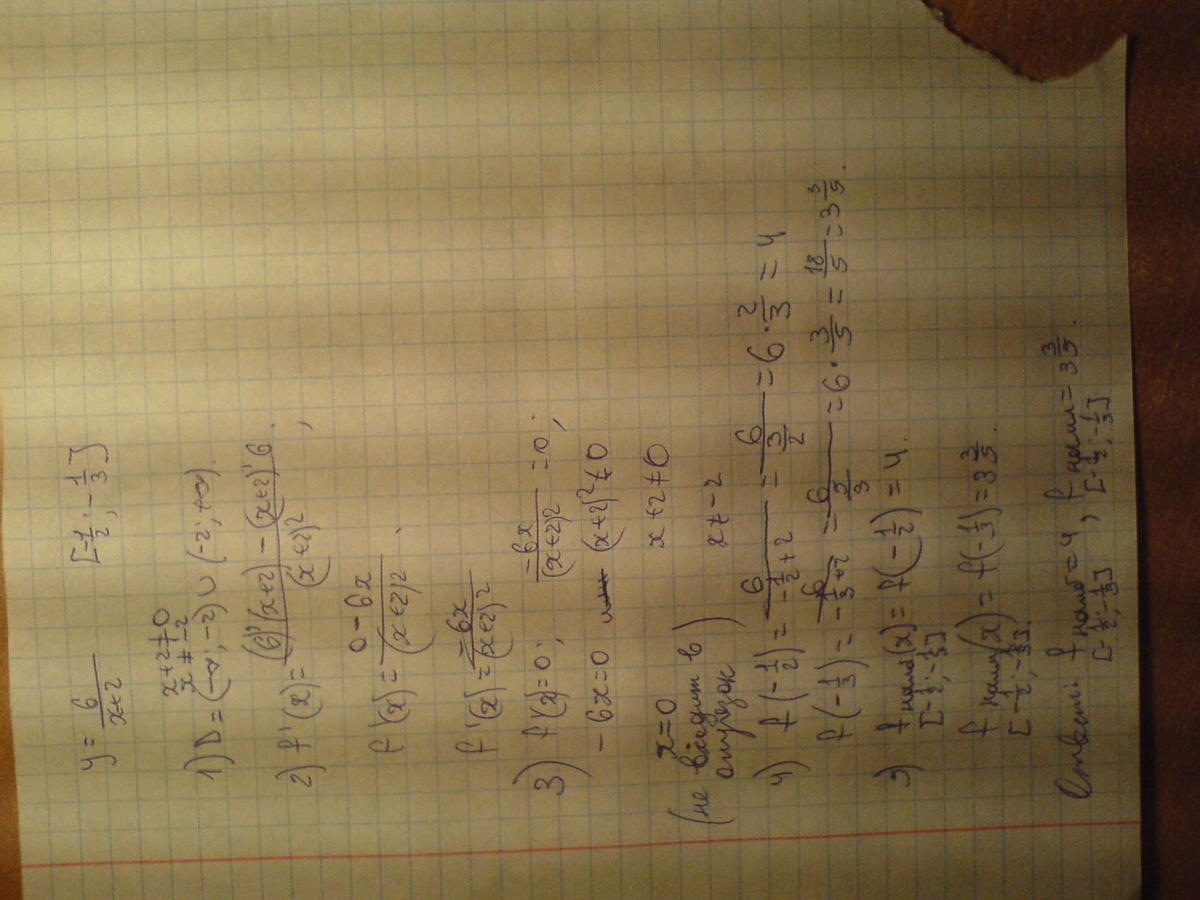 y = 6/(x+2)   [-1/2; -1/3]
x+2≠0
x≠-2
1) D = (-∞; -2) ∪ (-2; +∞).
2) f'(x) = ((6)'(x+2) - (x+2)'6)/(x+2)²,
f'(x) = (0 - 6x)/(x+2)².
f'(x) = -6x/(x+2)²
3) f'(x) = 0; -6x/(x+2)² = 0;
-6x = 0   (x+2)² ≠ 0
x = 0   x+2≠0
(не входит в отрезок)   x≠-2
4) f(-1/2) = 6/(-1/2+2) = 6/(3/2) = 6·2/3 = 4
f(-1/3) = 6/(-1/3+2) = 6/(5/3) = 6·3/5 = 18/5 = 3 3/5.
5) f наиб(x) = f(-1/2) = 4.
[-1/2; -1/3]
f наим(x) = f(-1/3) = 3 3/5.
[-1/2; -1/3].
Ответ: f наиб = 4, f наим = 3 3/5.
[-1/2; -1/3]   [-1/2; -1/3]